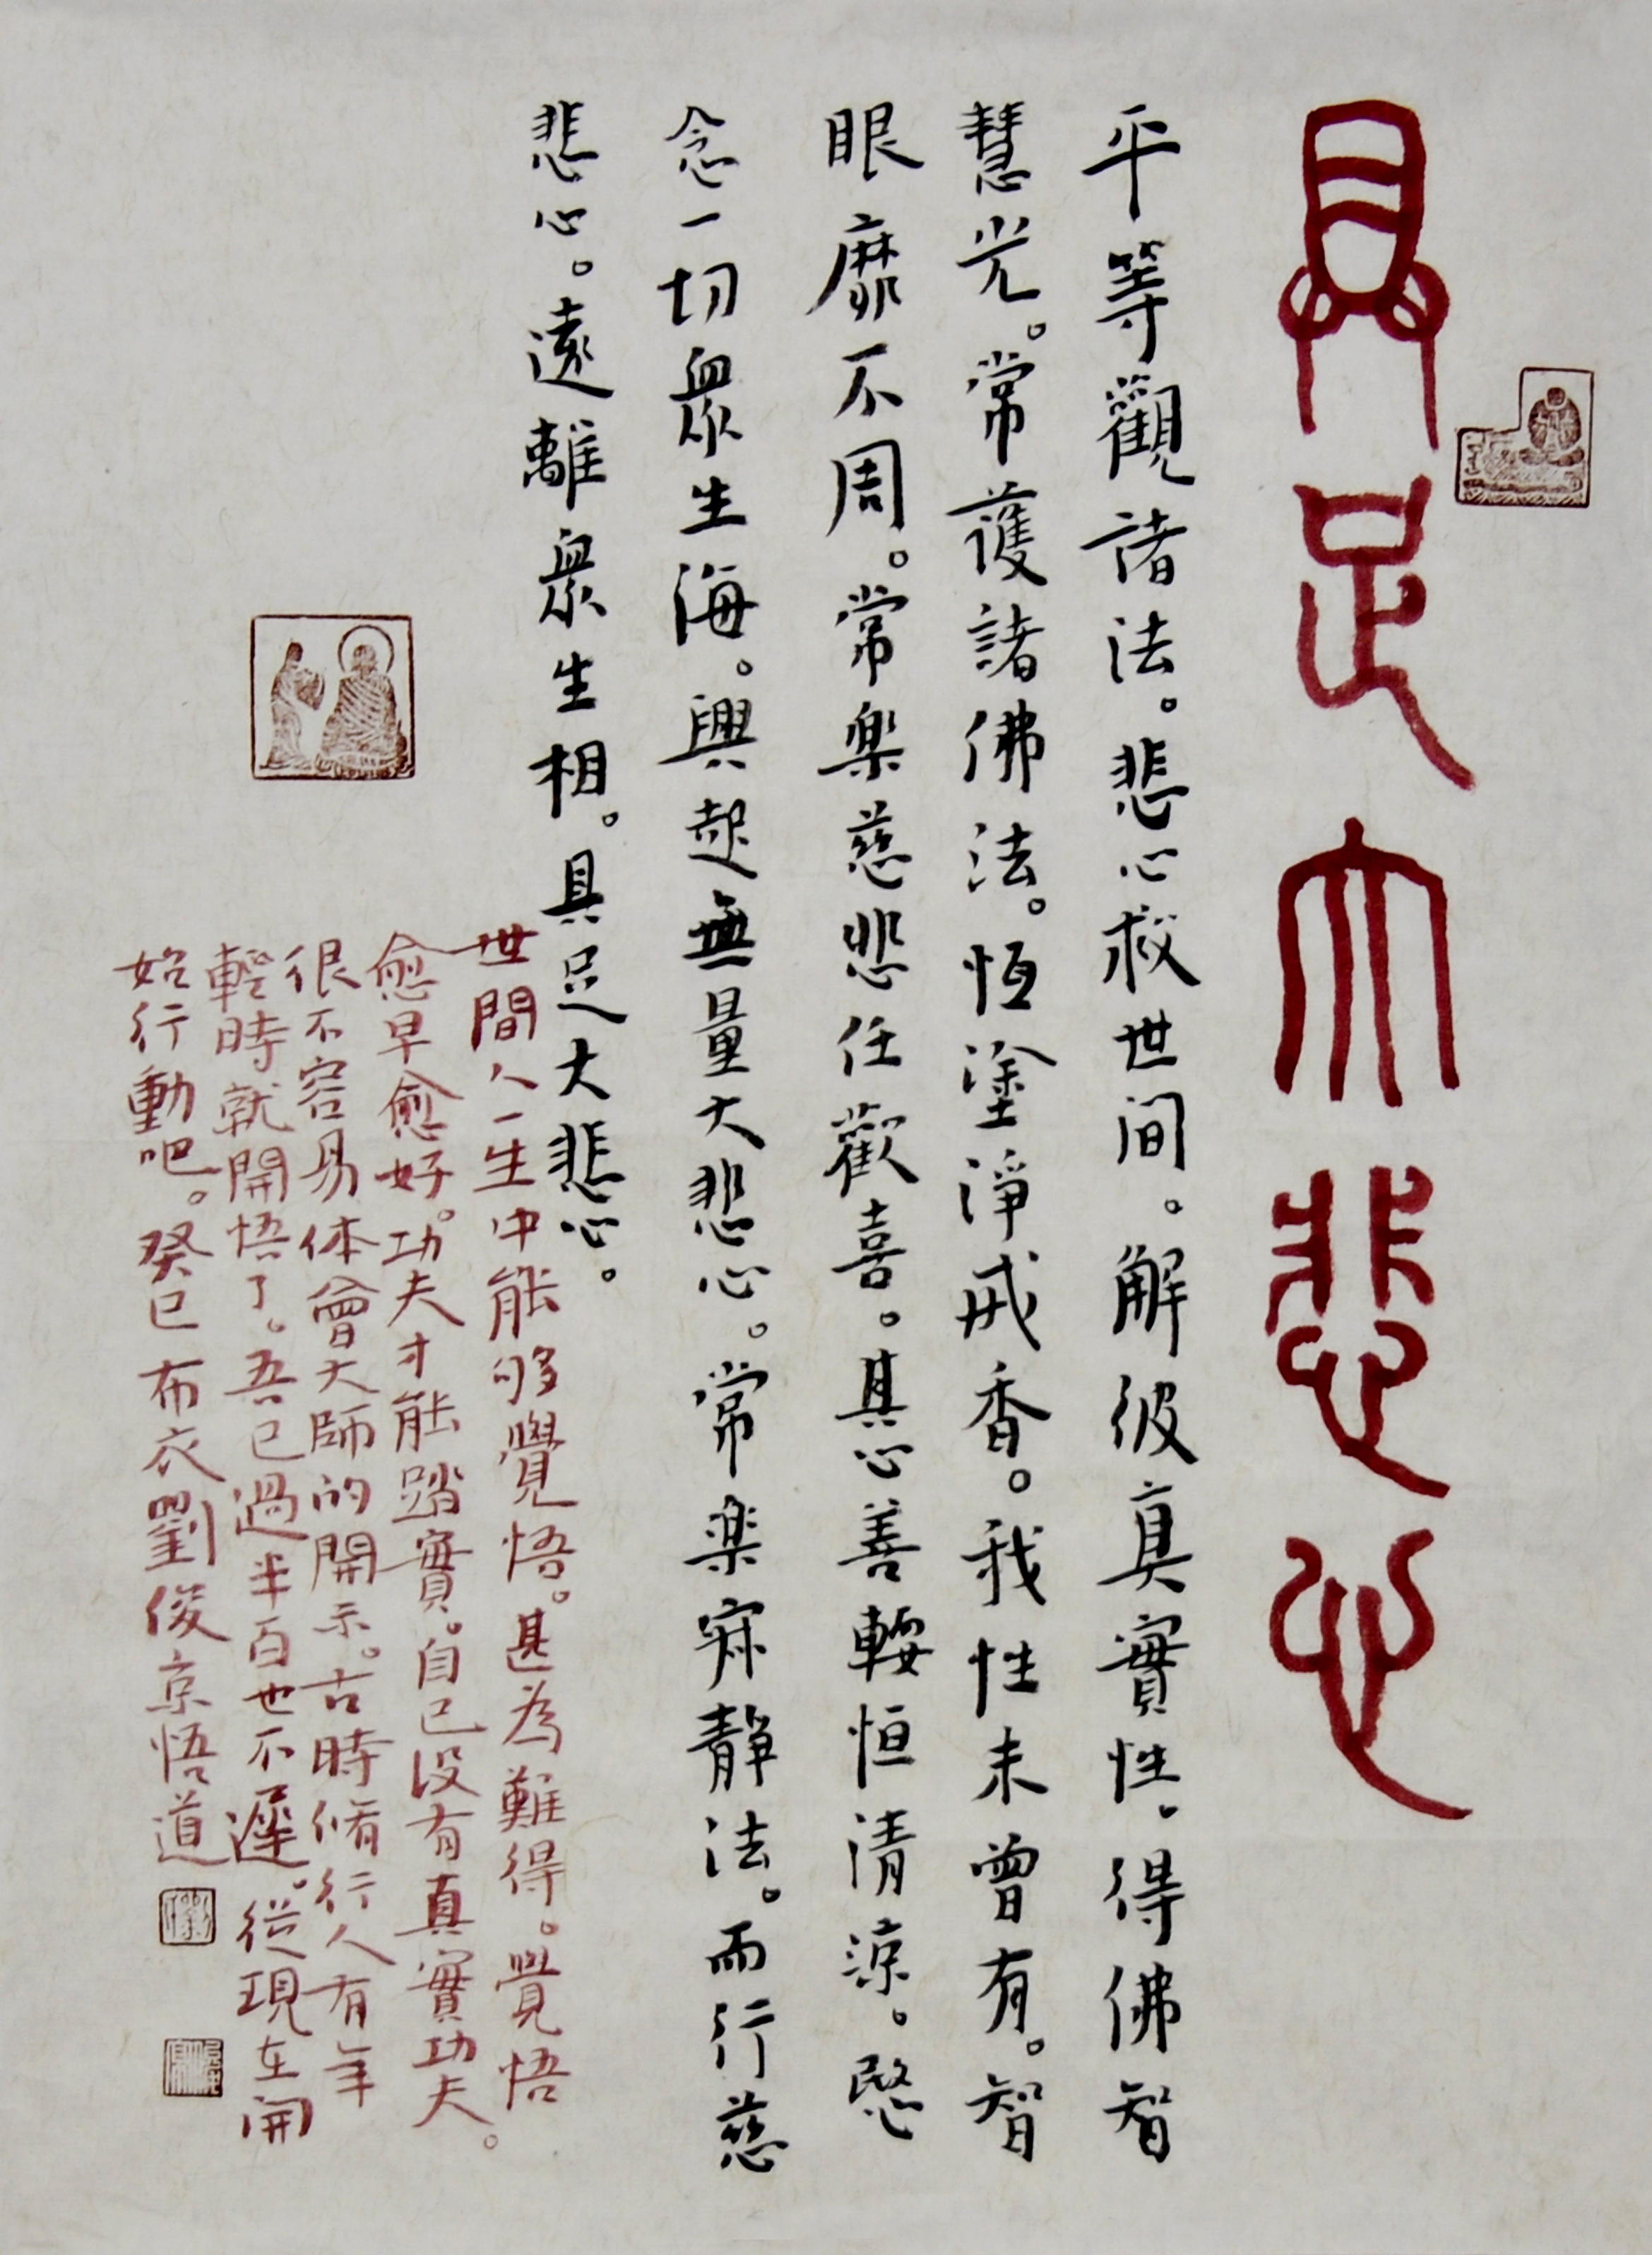 具足大悲心
平等觀諸法。悲心救世间。解彼真實性。得佛智
慧光。常護諸佛法。恆塗淨戒香。我性未曾有。智
眼靡不周。常楽慈悲任歡喜。其心善輭恒清涼。愍
念一切眾生海。興起無量大悲心。常楽寂靜法。而行慈
悲心。遠離眾生相。具足大悲心。
世間人一生中能够覺悟。甚為難得。覺悟
愈早愈好。功夫才能踏實。自己没有真實功夫。
很不容易体會大師的開示。古時脩行人有年
輕時就開悟了。吾已過半百也不遲。從現在開
始行動吧。癸巳布衣劉俊京悟道